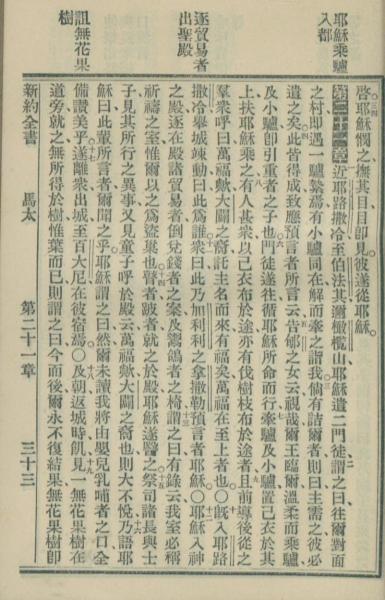 耶穌乘驢
入都
逐貿易者
出聖殿
詛無花果
樹
啓耶穌憫之撫其目目即見彼遂從耶穌
第二十一章 近耶路撒冷至伯法其濱橄欖山耶穌遣二門徒謂之曰往爾對面
之村即遇一驢縶焉有小驢同在解而牽之詣我倘有詰爾者則曰主需之彼必
遣之矣此皆得成致應預言者所言云告郇之女云視哉爾王臨爾溫柔而乘驢
及小驢即引重者之子也門徒遂往循耶穌所命而行牽驢及小驢置己衣於其
上扶耶穌乘之有人甚衆以己衣布於途亦有伐樹枝布於途者且前導後從之
羣衆呼曰萬福歟大闢之裔託主名而來有福矣萬福在至上者也〇旣入耶路
撒冷舉城竦動曰此爲誰衆曰此乃加利利之拿撒勒預言者耶穌〇耶穌入神
之殿逐在殿諸貿易者倒兌錢者之案及鬻鴿者之椅謂之曰有錄云我室必稱
祈禱之室惟爾以之爲盜巢也瞽者跛者就之於殿耶穌遂醫之祭司諸長與士
子見其所行之異事又見童子呼於殿云萬福歟大闢之裔也則大不悅乃語耶
穌曰此輩所言者爾聞之乎耶穌謂之曰然爾未讀我將由嬰兒乳哺者之口全
備讚美乎遂離衆出城至百大尼在彼宿焉〇及朝返城時飢見一無花果樹在
道旁就之無所得於樹惟葉而已則謂之曰今而後爾永不復結果無花果樹即
新約全書 馬太 第二十一章 三十三